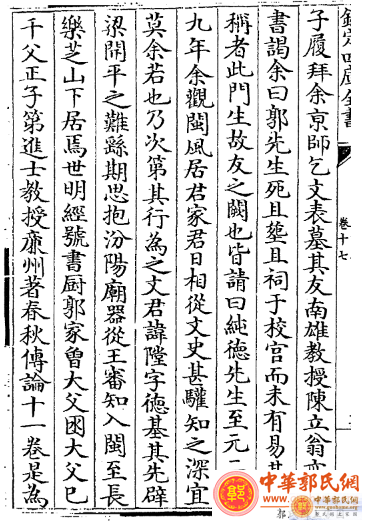 欽定四庫全書
卷十七
子履拜余京師乞文表墓其友南雄教授陳立翁亦
書謁余曰郭先生死且塟且祠于校官而未有易其
稱者此門生故友之闕也皆請曰純德先生至元二
九年余觀閩風居君家君日相從文史甚驩知之深宜
莫余若也乃次第其行為之文君諱隥字德基其先辟
梁開平之難繇期思抱汾陽廟器從王審知入閩至長
樂芝山下居焉世明經號書厨郭家曾大父困大父巳
千父正子第進士教授㢘州著春秋傳論十一卷是為
中華郭氏网